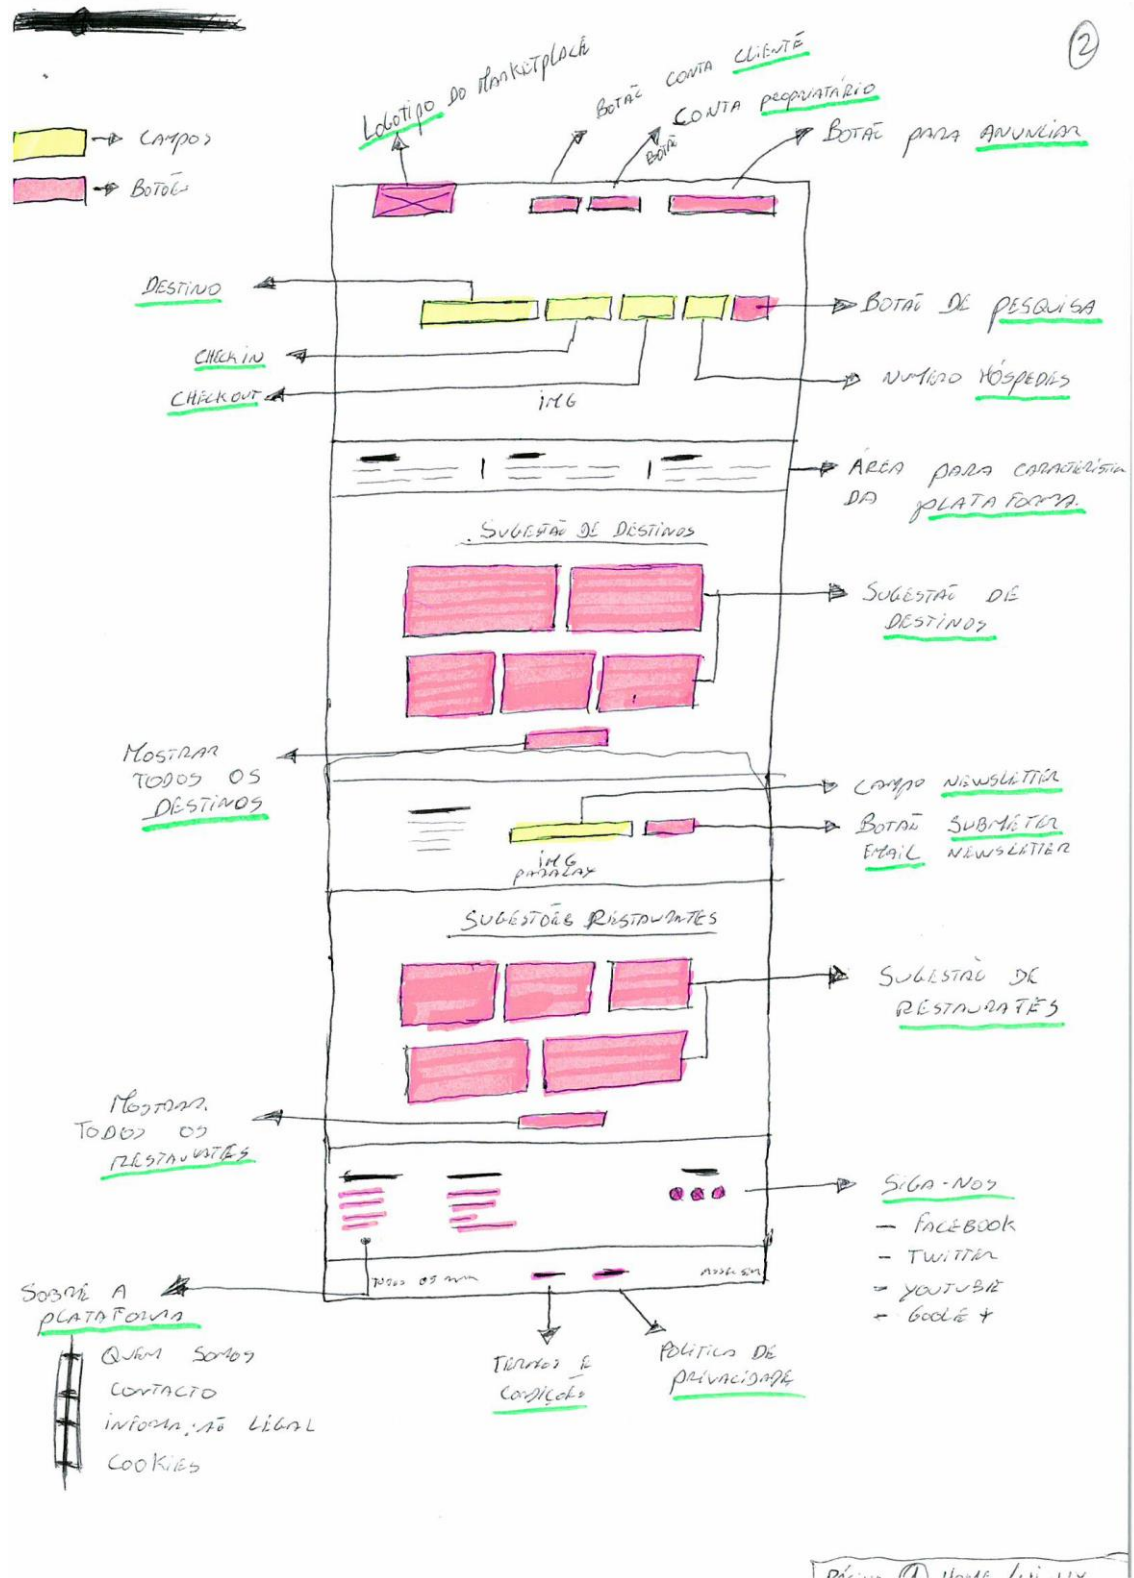 2
LOGOTIPO DO MARKETPLACE
BOTÃO CONTA CLIENTE
BOTÃO CONTA PROPRIATÁRIO
BOTÃO PARA ANUNCIAR
CAMPOS
BOTÕES
DESTINO
BOTÃO DE PESQUISA
CHECKIN
CHECKOUT
NUMERO HÓSPEDES
IMG
ÁREA PARA CARACTERÍSTICA
DA PLATAFORMA.
SUGESTÃO DE DESTINOS
SUGESTÃO DE
DESTINOS
MOSTRAR
TODOS OS
DESTINOS
CAMPO NEWSLETTER
BOTÃO SUBMETER
EMAIL NEWSLETTER
IMG
PARALAX
SUGESTÕES RESTAURANTES
SUGESTÃO DE
RESTAURATÊS
MOSTRAR
TODOS OS
RESTAURATÊS
SIGA-NOS
- FACEBOOK
- TWITTER
- YOUTUBE
- GOOLE +
TODOS OS
SOBRE A
PLATAFORMA
QUEM SOMOS
CONTACTO
INFORMAÇÃO LEGAL
COOKIES
TERMOS E
CONDIÇÕES
POLITICA DE
PRIVACIDADE
PÁGINA 1 HOME /UI UX